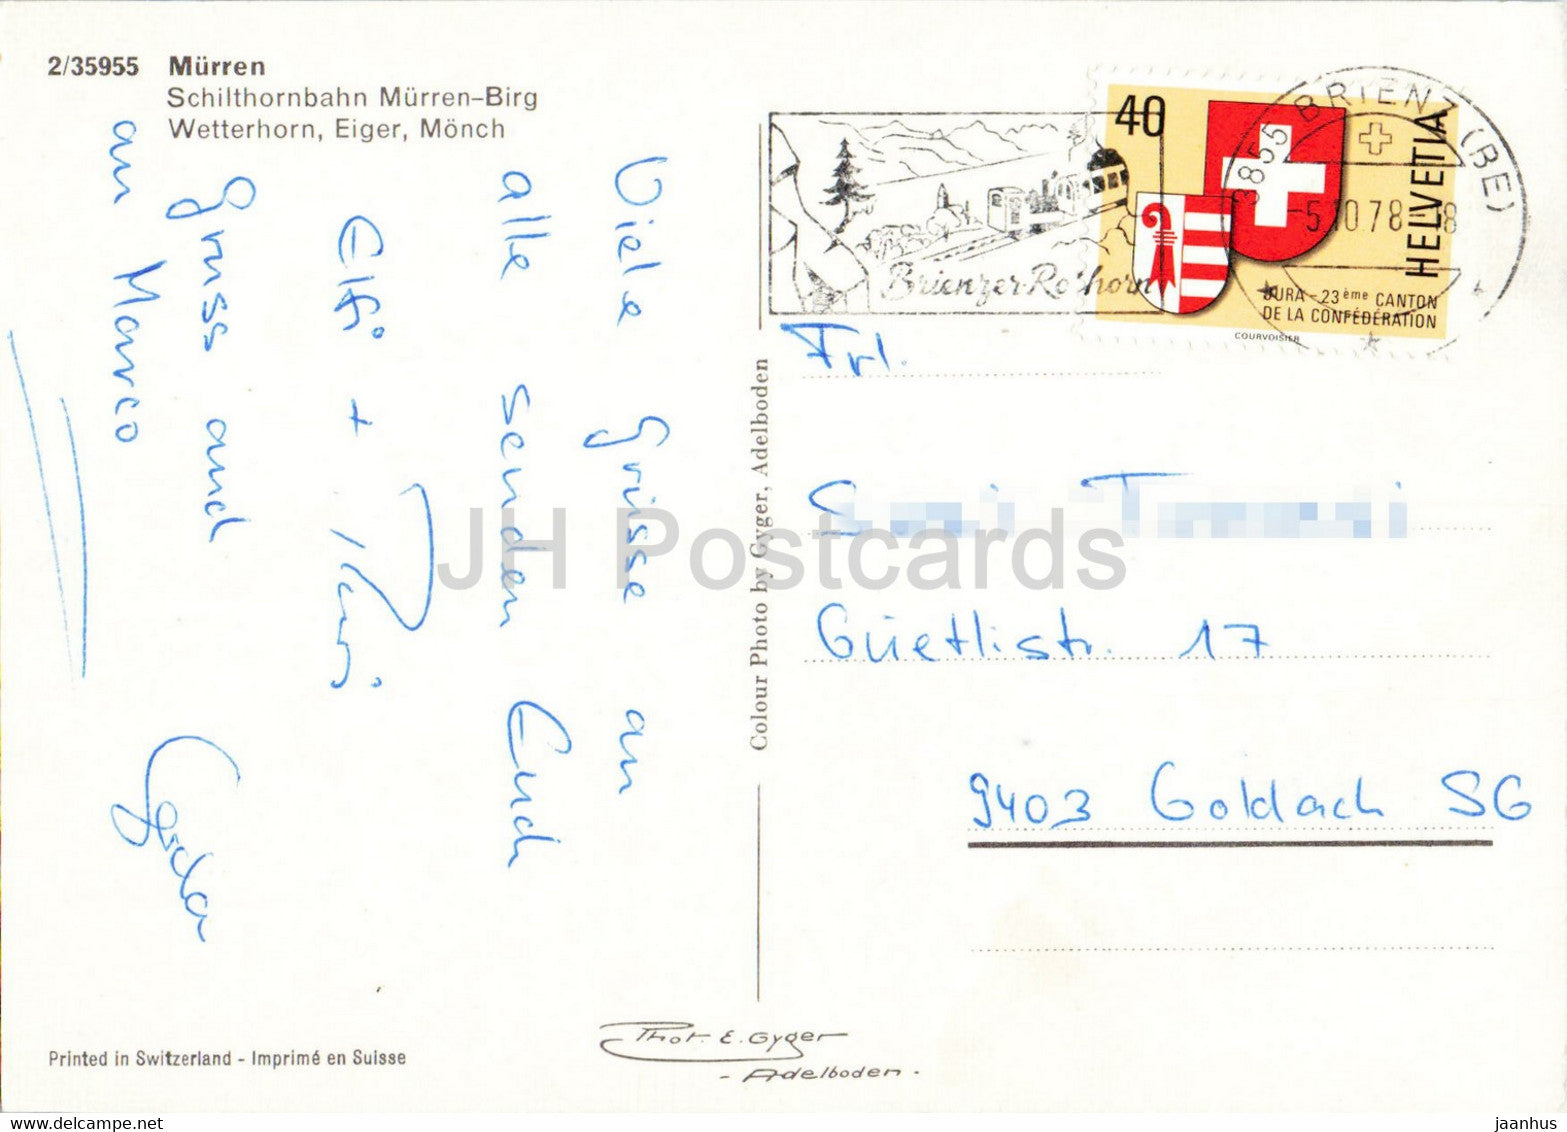 2/35955 Mürren
Schilthornbahn Mürren–Birg
Wetterhorn, Eiger, Mönch
Viele Grüsse an
alle senden Euch
Elfi +
Gruss and
an Marco
Gerda
Colour Photo by Gyger, Adelboden
Brienzer-Rothorn
3855 BRIENZ (BE)
-5.10.78-18
40
HELVETIA
JURA – 23ème CANTON
DE LA CONFÉDÉRATION
COURVOISIER
Frl.
Güetlistr. 17
9403 Goldach SG
Printed in Switzerland - Imprimé en Suisse
Phot. E. Gyger
- Adelboden -
JH Postcards
www.delcampe.net
jaanhus